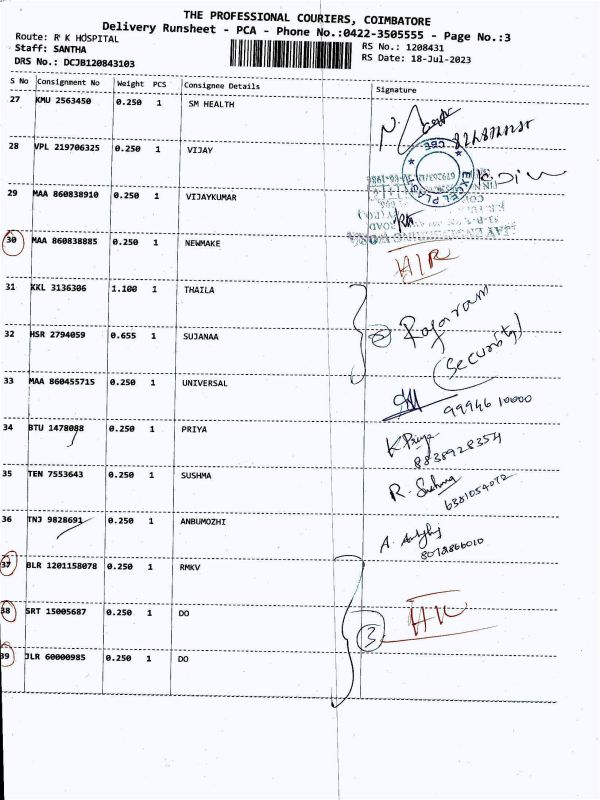 THE PROFESSIONAL COURIERS, COIMBATORE
Delivery Runsheet - PCA - Phone No.:0422-3505555 - Page No.:3
Route: R K HOSPITAL
Staff: SANTHA
RS No.: 1208431
DRS No.: DCJB120843103
RS Date: 18-Jul-2023
S No Consignment No Weight PCS Consignee Details Signature
27 KMU 2563450 0.250 1 SM HEALTH
28 VPL 219706325 0.250 1 VIJAY
29 MAA 860838910 0.250 1 VIJAYKUMAR
30 MAA 860838885 0.250 1 NEWMAKE
31 KKL 3136306 1.100 1 THAILA Rajaram
32 HSR 2794059 0.655 1 SUJANAA (Security)
33 MAA 860455715 0.250 1 UNIVERSAL 99946 10000
34 BTU 1478088 0.250 1 PRIYA K Priya
8838928354
35 TEN 7553643 0.250 1 SUSHMA R. Sushma
6381054072
36 TNJ 9828691 0.250 1 ANBUMOZHI A.
8072866010
37 BLR 1201158078 0.250 1 RMKV
38 SRT 15005687 0.250 1 DO 3
39 JLR 60000985 0.250 1 DO